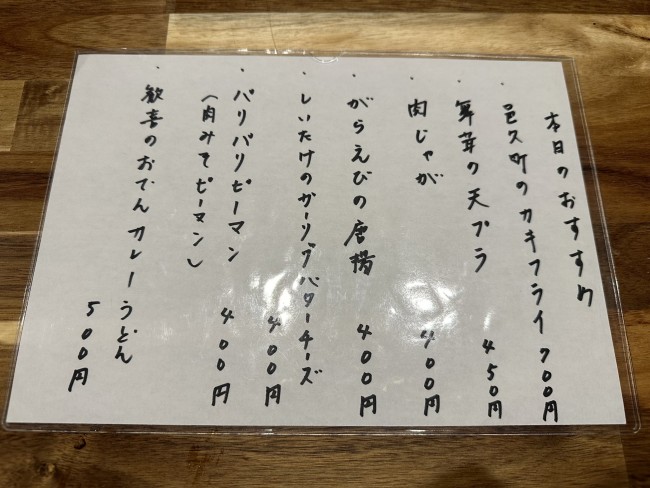 本日のおすすめ
・邑久町のカキフライ 700円
・舞茸の天プラ 450円
・肉じゃが 400円
・がらえびの唐揚 400円
・しいたけのガーリックバターチーズ 400円
・パリパリピーマン
(肉みそピーマン) 400円
・歓喜のおでんカレーうどん
500円